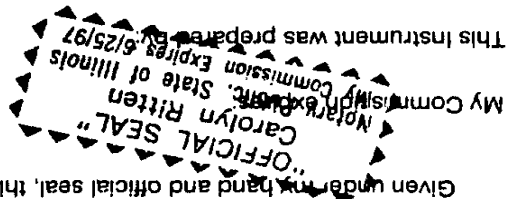 Given under my hand and official seal, thi
"OFFICIAL SEAL"
Carolyn Ritten
Notary Public, State of Illinois
My Commission Expires 6/25/97
My Commission expires
This Instrument was prepared by: